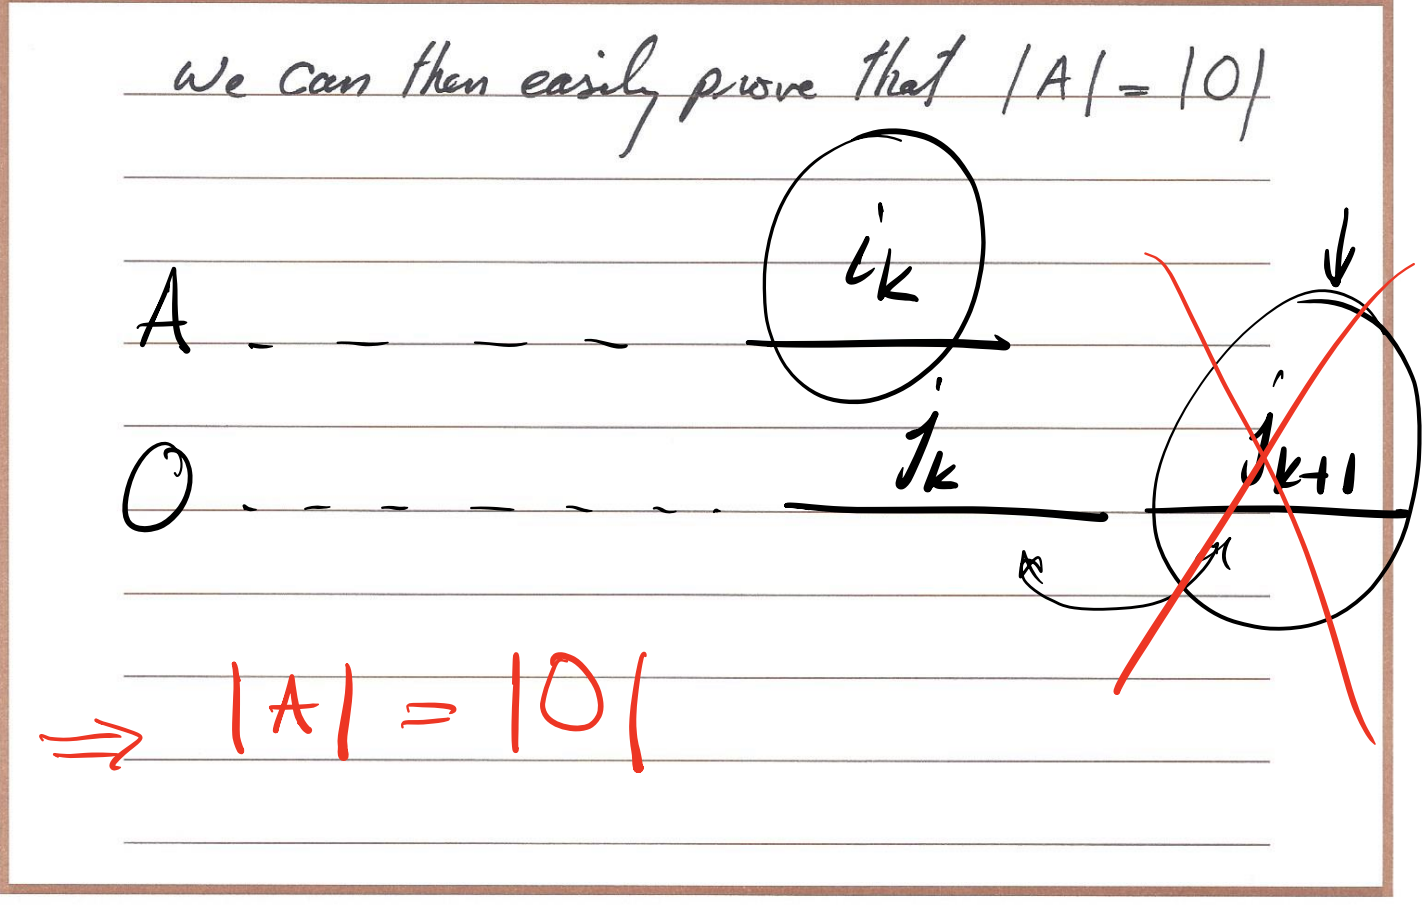 We can then easily prove that |A| = |O|
i_k
A
j_k
j_{k+1}
O
⇒ |A| = |O|